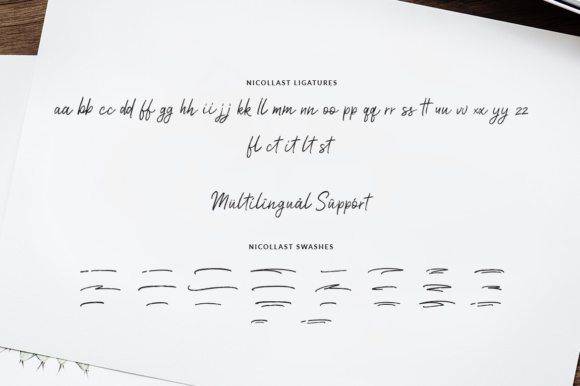 NICOLLAST LIGATURES
aa bb cc dd ff gg hh ii jj kk ll mm nn oo pp qq rr ss tt uu vv xx yy zz
fl ct it lt st
Mültilíngüál Sûppórt
NICOLLAST SWASHES